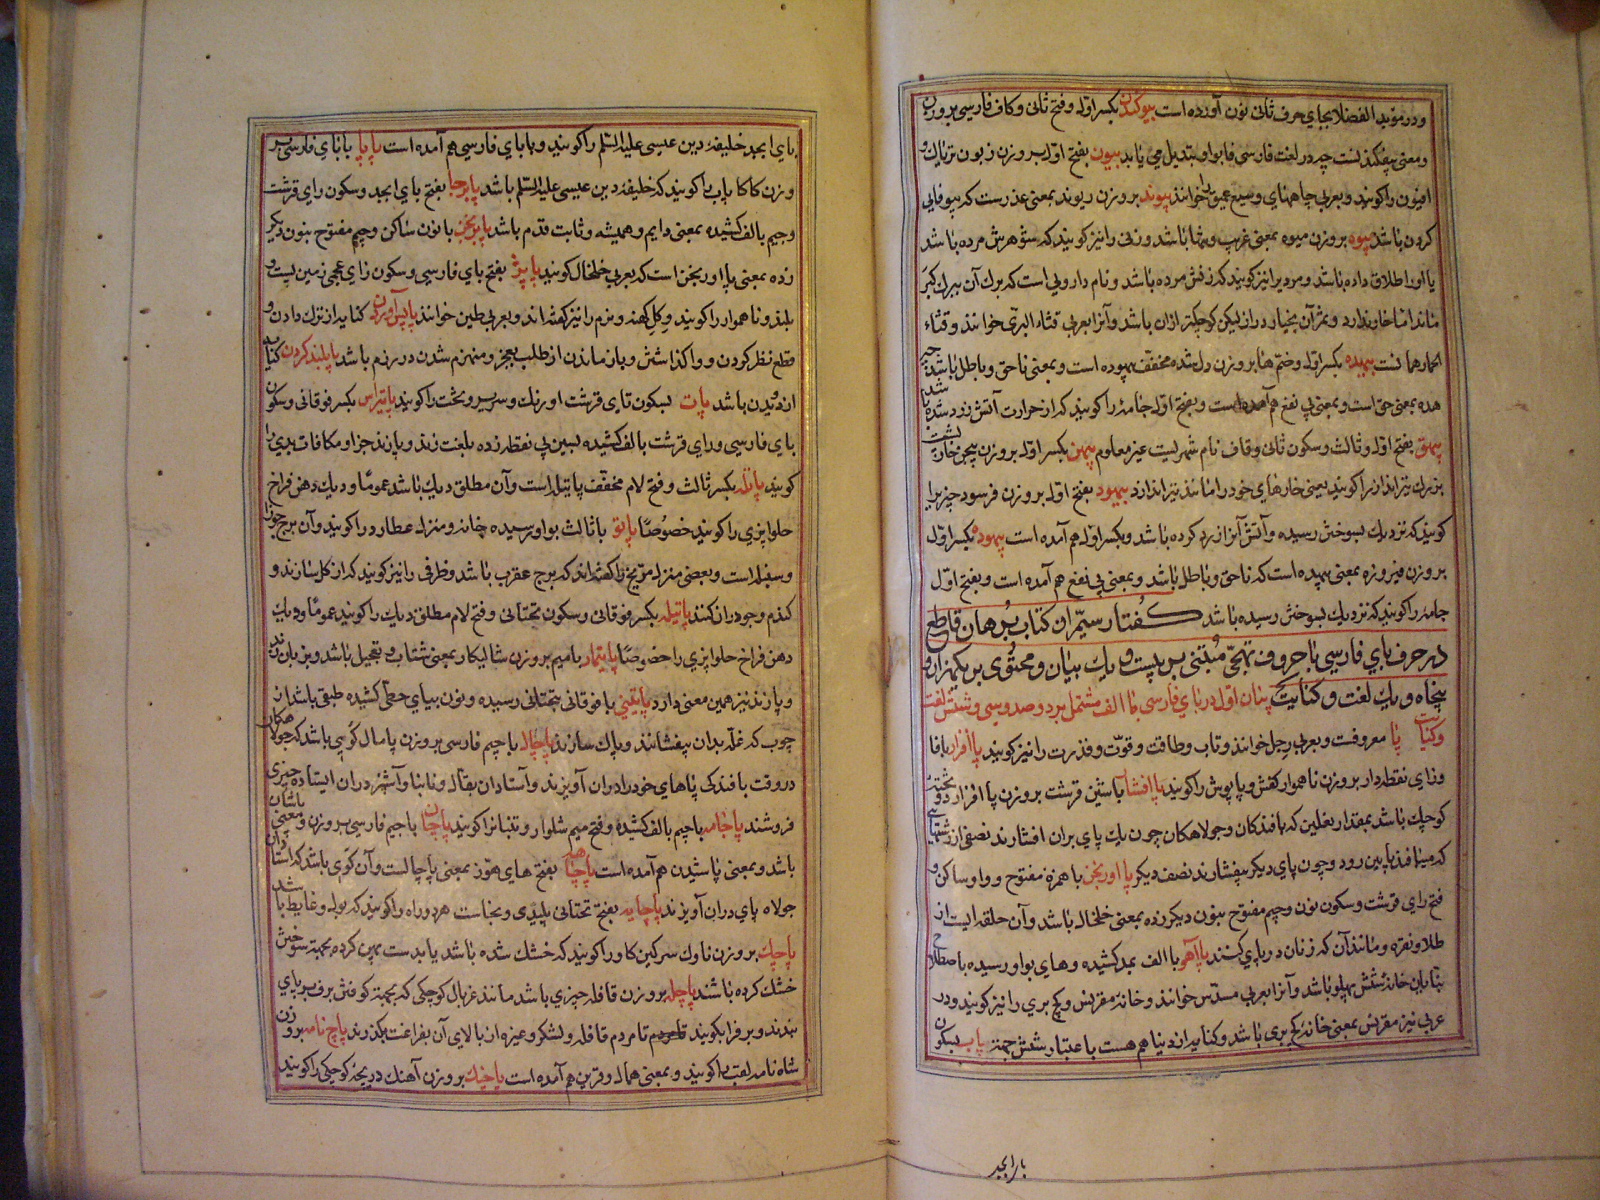 ودر مؤید الفضلا بجای حرف ثانی نون آورده است بیوکندن بکسر اول وفتح ثانی وکاف فارسی بروزن
ومعنی بیفکندنست چه در لغت فارسی فا بواو تبدیل می یابد بیون بفتح اول بروزن زبون تریاك و
افیون را کویند وبعربی چاههای وسیع عمیق را خوانند بیوند بروزن ریوند بمعنی عذرست که بیوفایی
کردن باشد بیوه بروزن میوه بمعنی غریب وتنها باشد وزنی را نیز کویند که شوهرش مرده باشد
یا او را طلاق داده باشد ومردیرا نیز کویند که زنش مرده باشد ونام دارویی است که برك آن ببرك کبر
ماند اما خار ندارد وثمر آن بخیار دراز لیکن کوچکتر ازان باشد وآنرا بعربی قثاء البری خوانند وقثاء
الحمار همانست بیهده بکسر اول وضم ها بروزن دلشده مخفف بیهوده است وبمعنی ناحق وباطل باشد چه
هده بمعنی حق است وبمعنی بی نفع هم آمده است وبفتح اول جامهٔ را کویند که از حرارت آتش زرد شده باشد
بیهق بفتح اول وثالث وسکون ثانی وقاف نام شهریست غیر معلوم بیهن بکسر اول بروزن بیجن خارپشت
بزرك تیرانداز را کویند یعنی خارهای خود را مانند تیر اندازد بیهود بفتح اول بروزن فرسود چیزیرا
کویند که نزدیك بسوختن رسیده وآتش آنرا زرد کرده باشد وبکسر اول هم آمده است بیهوده بکسر اول
بروزن فیروزه بمعنی بیهده است که ناحق وباطل باشد وبمعنی بی نفع هم آمده است وبفتح اول
جامهٔ را کویند که نزدیك بسوختن رسیده باشد کفتار سیم از کتاب برهان قاطع
در حرف بای فارسی با حروف تهجی مبتنی بر بیست ویك بیان ومحتوی بر یکهزار و
پنجاه ویك لغت وکنایت بیان اول در بای فارسی با الف مشتمل بر دوصد وسی وشش لغت
وکنایت پا معروفست وبعربی رجل خوانند وتاب وطاقت وقوت وقدرت را نیز کویند پاافزار با فا
وزای نقطه دار بروزن ناهموار کفش وپاپوش را کویند پاافشار با شین قرشت بروزن پاافزار دو تخته
کوچك باشد بمقدار نعلین که بافندکان وجولاهکان چون یك پای بران افشارند نصفی از رشتهایی
که میبافند پایین رود وچون پای دیکر بیفشارند نصف دیکر پااورنجن با همزه مفتوح وواو ساکن و
فتح رای قرشت وسکون نون وجیم مفتوح بنون دیکر زده بمعنی خلخال باشد وآن حلقه ایست از
طلا ونقره ومانند آن که زنان در پای کنند پاآهو با الف بمد کشیده وهای بواو رسیده باصطلاح
بنایان خانهٔ شش پهلو باشد وآنرا بعربی مسدس خوانند وخانهٔ مقرنس وکچ بری را نیز کویند ودر
عربی نیز مقرنس بمعنی خانهٔ کچ بری باشد وکنایه از دنیا هم هست باعتبار شش جهت پاب بسکون
بای ابجد
بای ابجد خلیفهٔ دین عیسی علیه السلام را کویند وبا بای فارسی هم آمده است پاپا با بای فارسی بر
وزن کاکا باب را کویند که خلیفهٔ دین عیسی علیه السلام باشد پابرجا بفتح بای ابجد وسکون رای قرشت
وجیم بالف کشیده بمعنی دایم وهمیشه وثابت قدم باشد پابرنجن با نون ساکن وجیم مفتوح بنون دیکر
زده بمعنی پااورنجن است که بعربی خلخال کویند پاپژ بفتح بای فارسی وسکون زای عجمی زمین پست و
بلند وناهموار را کویند وکل کهنه ونرم را نیز کفته اند وبعربی طین خوانند پاپس آوردن کنایه از ترك دادن و
قطع نظر کردن وواکذاشتن وبازماندن از طلب بعجز ومنهزم شدن در رزم باشد پابلند کردن کنایه
از دویدن باشد پات بسکون تای قرشت اورنك وسریر وتخت را کویند پاتپراس بکسر فوقانی وسکون
بای فارسی ورای قرشت بالف کشیده بسین بی نقطه زده بلغت زند وپازند جزا ومکافات بدی را
کویند پاتله بکسر ثالث وفتح لام مخفف پاتیله است وآن مطلق دیك باشد عموما ودیك دهن فراخ
حلواپزی را کویند خصوصا پاتو با ثالث بواو رسیده خانه ومنزل عطارد را کویند وآن برج جوزا
وسنبله است وبعضی منزل مریخ را کفته اند که برج عقرب باشد وظرفی را نیز کویند که از کل سازند و
کندم وجو دران کنند پاتیله بکسر فوقانی وسکون تحتانی وفتح لام مطلق دیك را کویند عموما ودیك
دهن فراخ حلواپزی را خصوصا پاتیمار با میم بروزن شالیکار بمعنی شتاب وتعجیل باشد وبزبان زند
وپازند نیز همین معنی دارد پاتینی با فوقانی بتحتانی رسیده ونون بیای حطی کشیده طبقی باشد از
چوب که غله بدان بیفشانند وپاك سازند پاچال با چیم فارسی بروزن پامال کوی باشد که جولاهکان
در وقت بافندکی پاهای خود را دران آویزند واستادان بقال ونانبا وآشپز دران ایستاده چیزی
فروشند پاجامه با جیم بالف کشیده وفتح میم شلوار وتنبانرا کویند پاچان با جیم فارسی بروزن ومعنی پاشان
باشد وبمعنی پاشیدن هم آمده است پاچاهه بفتح های هوز بمعنی پاچالست وآن کوی باشد که استادان
جولاه پای دران آویزند پاچایه بفتح تحتانی پلیدی ونجاست هر دو راه را کویند که بول وغایط باشد
پاچك بروزن ناوك سرکین کاو را کویند که خشك شده باشد یا بدست پهن کرده بجهت سوختن
خشك کرده باشند پاچله بروزن قافله چیزی باشد مانند غربال کوچکی که بجهت کوفتن برف بر پای
بندند وبرف را بکوبند تا مردم قافله ولشکر وغیره از بالای آن بفراغت بکذرند پاچ نامه بروزن
شاه نامه لقب را کویند وبمعنی همال وقرین هم آمده است پاخیك بروزن آهنك دریچه کوچکی را کویند